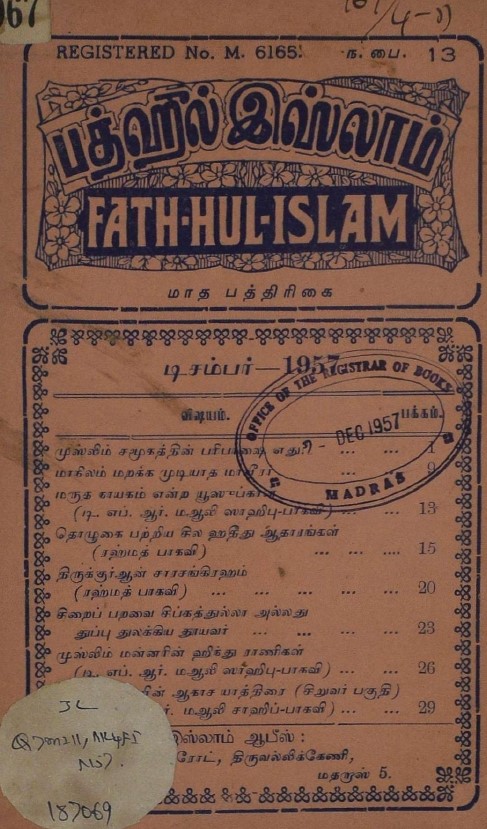 067
REGISTERED No. M. 6165. ந. பை. 13
பத்ஹுல் இஸ்லாம்
FATH-HUL-ISLAM
மாத பத்திரிகை
டிசம்பர் — 1957
OFFICE OF THE REGISTRAR OF BOOKS
DEC 1957
MADRAS
விஷயம். பக்கம்.
முஸ்லிம் சமூகத்தின் பரிபாஷை எது? ... ... 1
மாநிலம் மறக்க முடியாத ... ... 9
மருத காயகம் என்ற
(டி. எப். ஆர். மஆலி ஸாஹிபு-பாகவி) ... ... 13
தொழுகை பற்றிய சில ஹதீது ஆதாரங்கள்
(ரஹ்மத் பாகவி) ... ... ... 15
திருக்குர்ஆன் சாரசங்கிரஹம்
(ரஹ்மத் பாகவி) ... ... ... ... ... 20
சிறைப் பறவை சிப்கத்துல்லா அல்லது
துப்பு துலக்கிய தூயவர் ... ... ... ... 23
முஸ்லிம் மன்னரின் ஹிந்து ராணிகள்
(டி. எப். ஆர். மஆலி ஸாஹிபு-பாகவி) ... ... 26
ரின் ஆகாச யாத்திரை (சிறுவர் பகுதி)
ர். மஆலி சாஹிப்-பாகவி) ... ... 29
இஸ்லாம் ஆபீஸ் :
ரோட், திருவல்லிக்கேணி,
மதறாஸ் 5.
187069